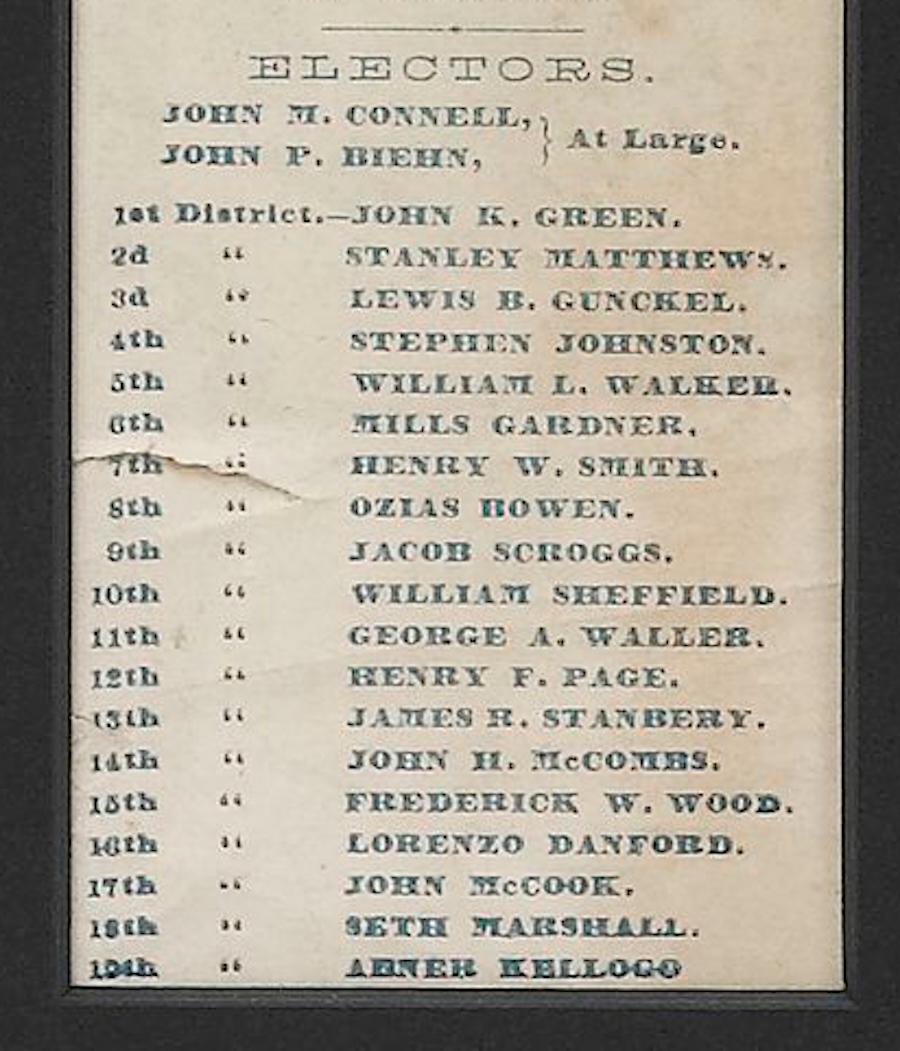 ELECTORS.
JOHN M. CONNELL, } At Large.
JOHN P. BIEHN,
1st District.—JOHN K. GREEN.
2d " STANLEY MATTHEWS.
3d " LEWIS B. GUNCKEL.
4th " STEPHEN JOHNSTON.
5th " WILLIAM L. WALKER.
6th " MILLS GARDNER.
7th " HENRY W. SMITH.
8th " OZIAS BOWEN.
9th " JACOB SCROGGS.
10th " WILLIAM SHEFFIELD.
11th " GEORGE A. WALLER.
12th " HENRY F. PAGE.
13th " JAMES R. STANBERY.
14th " JOHN H. McCOMBS.
15th " FREDERICK W. WOOD.
16th " LORENZO DANFORD.
17th " JOHN McCOOK.
18th " SETH MARSHALL.
19th " ABNER KELLOGG